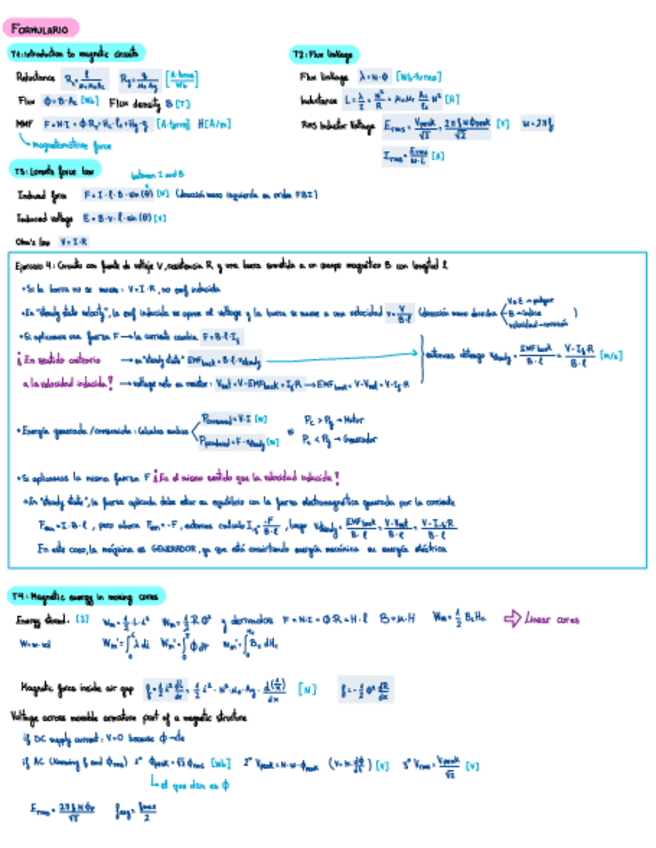 FORMULARIO
T1: Introduction to magnetic circuits
Reluctance Rc = l / μ0 μr Ac Rg = g / μ0 Ag [A·turns / Wb]
Flux ϕ = B·Ac [Wb] Flux density B [T]
MMF F = N·I = ϕ·R = Hc·lc + Hg·g [A·turns] H [A/m]
magnetomotive force
T2: Flux linkage
Flux linkage λ = N·ϕ [Wb·turns]
Inductance L = λ/I = N²/R = μ0 μr Ac/lc N² [H]
RMS Inductor Voltage Erms = Vpeak/√2 = 2πf N ϕpeak/√2 [V] ω = 2πf
Irms = Erms/ω·L [A]
T3: Lorentz force law
between I and B
Induced force F = I·l·B·sin(θ) [N] (dirección mano izquierda en orden FBI)
Induced voltage E = B·v·l·sin(θ) [V]
Ohm's law V = I·R
Ejercicio 4: Circuito con fuente de voltaje V, resistencia R y una barra sometida a un campo magnético B con longitud l
• Si la barra no se mueve: V = I·R, no emf inducida
• En "steady state velocity", la emf inducida se opone al voltage y la barra se mueve a una velocidad v = V / B·l (dirección mano derecha V o E → pulgar
B → índice
velocidad → corazón )
• Si aplicamos una fuerza F → la corriente cambia F = B·l·I
¡En sentido contrario → en "steady state" EMFback = B·l·vsteady
a la velocidad inducida! → voltage neto en resistor: Vnet = V - EMFback = I·R → EMFback = V - Vnet = V - I·R
entonces obtengo vsteady = EMFback / B·l = V - I·R / B·l [m/s]
• Energía generada / consumida: Calculas ambas Pconsumed = V·I [W]
Pproduced = F·vsteady [W]
si Pc > Pg → Motor
Pc < Pg → Generador
• Si aplicamos la misma fuerza F ¡En el mismo sentido que la velocidad inducida!
→ En "steady state", la fuerza aplicada debe estar en equilibrio con la fuerza electromagnética generada por la corriente
Fem = I·B·l, pero ahora Fem = -F, entonces calculo I = -F / B·l, luego vsteady = EMFback / B·l = V - Vnet / B·l = V - I·R / B·l
En este caso, la máquina es GENERADOR, ya que está convirtiendo energía mecánica en energía eléctrica
T4: Magnetic energy in moving cores
Energy stored. [J] Wm = 1/2·L·i² Wm = 1/2 R ϕ² y derivados F = N·I = ϕ·R = H·l B = μ·H Wm = 1/2 Bc Hc ⇒ Linear cores
Wm' = ∫ λ di Wm' = ∫ ϕ dF wm' = ∫ Bc dHc
Magnetic force inside air gap f = 1/2 i² dL/dx = 1/2 i²·N²·μ0·Ag· d(1/x)/dx [N] f = -1/2 ϕ² dR/dx
Voltage across movable armature part of a magnetic structure
if DC supply current: V = 0 because ϕ → cte
if AC (knowing f and ϕrms) 1º ϕpeak = √2 ϕrms [Wb] 2º Vpeak = N·ω·ϕpeak (V = N·dϕ/dt) [V] 3º Vrms = Vpeak/√2 [V]
el que dan es ϕ
Erms = 2πf N ϕ/√2 favg = fmax/2